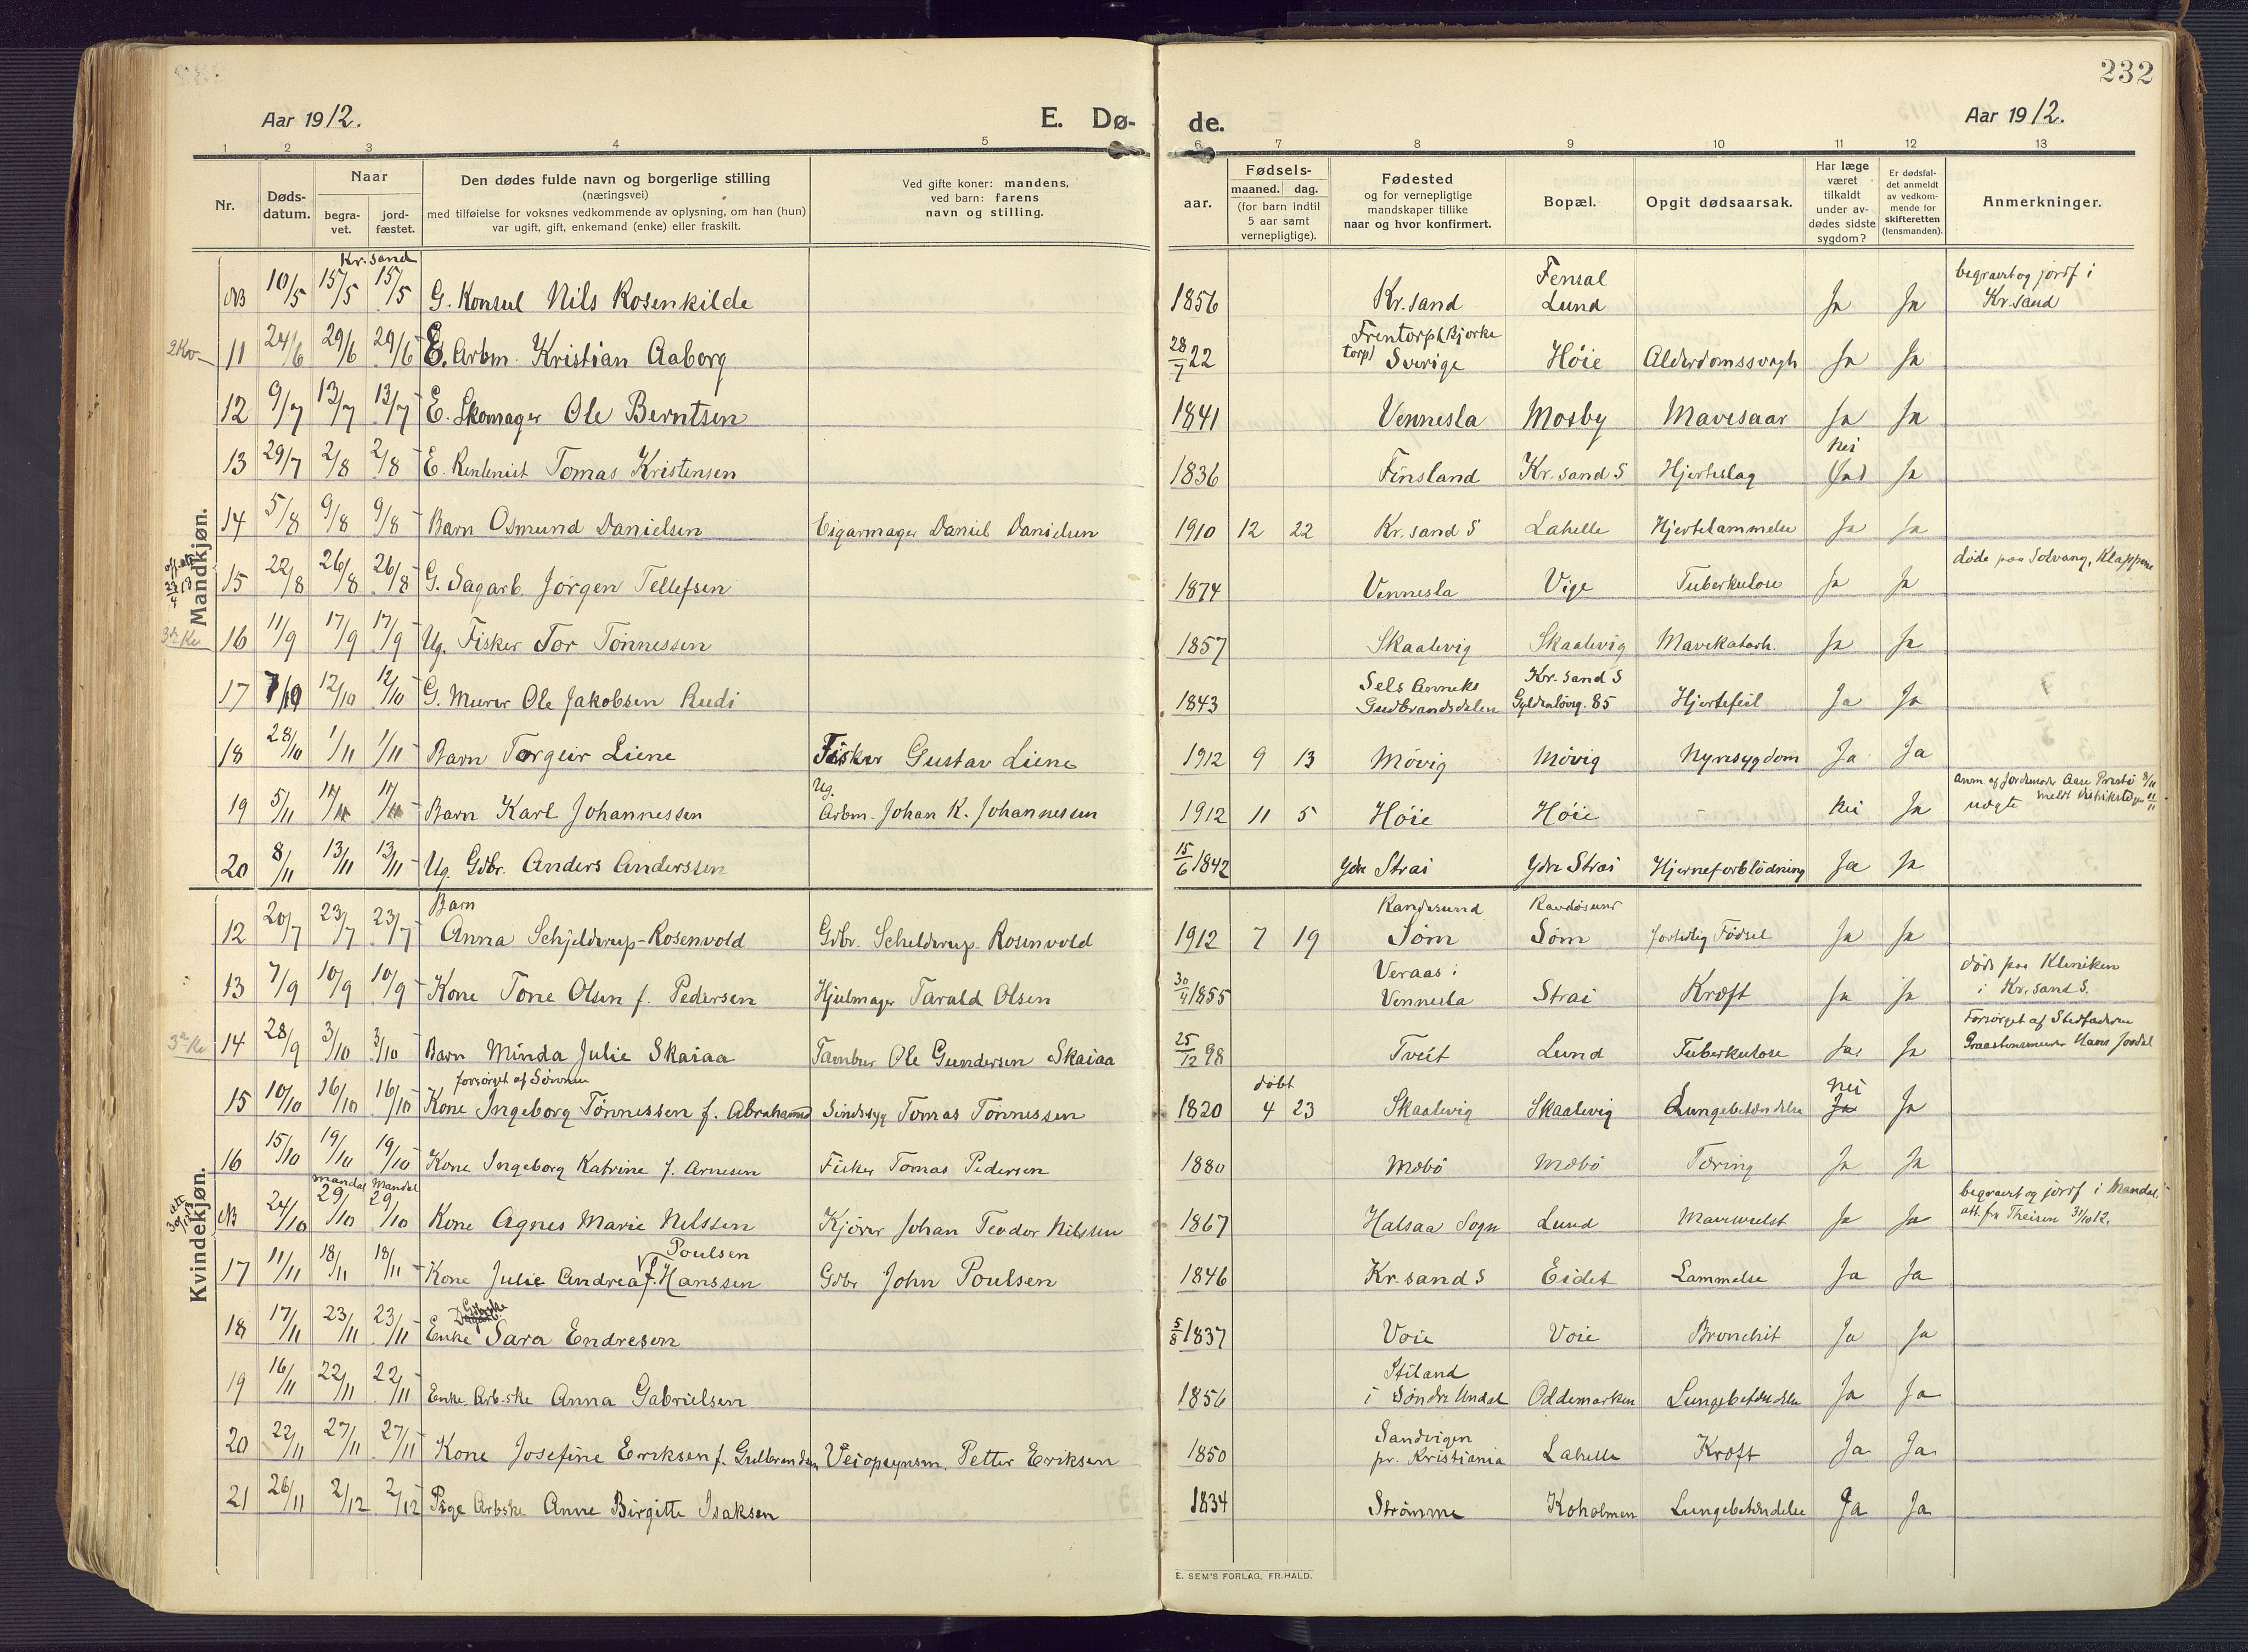 232
Aar 1912. E. Dø- de. Aar 1912.
1 2 3 4 5 6 7 8 9 10 11 12 13
Nr.
Døds-
datum.
Naar
begra-
vet.
jord-
fæstet.
Den dødes fulde navn og borgerlige stilling
(næringsvei)
med tilføielse for voksnes vedkommende av oplysning, om han (hun)
var ugift, gift, enkemand (enke) eller fraskilt.
Ved gifte koner: mandens,
ved barn: farens
navn og stilling.
aar.
Fødsels-
maaned. dag.
(for barn indtil
5 aar samt
vernepligtige).
Fødested
og for vernepligtige
mandskaper tillike
naar og hvor konfirmert.
Bopæl.
Opgit dødsaarsak.
Har læge
været
tilkaldt
under av-
dødes sidste
sygdom?
Er dødsfal-
det anmeldt
av vedkom-
mende for
skifteretten
(lensmanden).
Anmerkninger.
Mandkjøn.
Kr. sand
NB 10/5 15/5 15/5 G. Konsul Nils Rosenkilde 1856 Kr. sand Fensal Lund Ja Ja begravet og jordf i Kr. sand
11 24/6 29/6 29/6 E. Arbm. Kristian Aaborg 28/7 22 Frentorp (Bjorke torp) Sverige Høie Alderdomssvagh Ja Ja
12 9/7 13/7 13/7 E. Skomager Ole Berntsen 1841 Vennesla Mosby Mavesaar Ja Ja
13 29/7 2/8 2/8 E. Rentenist Tomas Kristensen 1836 Finsland Kr. sand S Hjerteslag Nei (Ja) Ja
14 5/8 9/8 9/8 Barn Osmund Danielsen Cigarmager Daniel Danielsen 1910 12 22 Kr. sand S Lahelle Hjertelammelse Ja Ja
15 22/8 26/8 26/8 G. Sagarb. Jörgen Tellefsen 1874 Vennesla Vige Tuberkulose Ja Ja døde paa Solvang, Klappene
16 11/9 17/9 17/9 Ug. Fisker Tor Tönnessen 1857 Skaalevig Skaalevig Mavekatarh. Ja Ja
17 7/10 12/10 12/10 G. Murer Ole Jakobsen Rudi 1843 Sels Anneks Gudbrandsdalen Kr. sand S Gyldenløvsg. 85 Hjertefeil Ja Ja
18 28/10 1/11 1/11 Barn Torgeir Liene Fisker Gustav Liene 1912 9 13 Møvig Møvig Nyresygdom Ja Ja
19 5/11 Barn Karl Johannessen Ug. Arbm. Johan K. Johannessen 1912 11 5 Høie Høie - Nei Ja uægte
20 8/11 13/11 13/11 Ug. Gdbr. Anders Anderssen 15/6 1842 Ydre Strai Ydre Strai Hjerneforblödning Ja Ja
Kvindekjøn.
12 20/7 23/7 23/7 Barn Anna Schjelderup-Rosenvold Gdbr. Schelderup Rosenvold 1912 7 19 Randesund Søm Randøsund Søm fortidlig Fødsel Ja Ja
13 7/9 10/9 10/9 Kone Tone Olsen f. Pedersen Hjulmager Tarald Olsen 30/4 1855 Veraas i Vennesla Strai Kræft Ja Ja døde paa Kliniken i Kr. sand S.
14 28/9 3/10 3/10 Barn Minda Julie Skaiaa Tambur Ole Gundersen Skaiaa 25/12 98 Tveit Lund Tuberkulose Ja Ja Forsörget af Stedfaderen
15 10/10 16/10 16/10 forsörget af Sönnen Kone Ingeborg Tönnessen f. Abrahamsd Sindssyg Tomas Tönnessen 1820 döbt 4 23 Skaalevig Skaalevig Lungebetændelse Nei Ja Ja
16 15/10 19/10 19/10 Kone Ingeborg Katrine f. Arnesen Fisker Tomas Pedersen 1880 Mæbö Mæbö Tæring Ja Ja
Mandal Mandal
NB 24/10 29/10 29/10 Kone Agnes Marie Nilssen Kjörer Johan Teodor Nilssen 1867 Halsaa Sogn Lund Mavesvulst Ja Ja begravet og jordf i Mandal. att. fra Theisen 31/10 12.
17 11/11 18/11 18/11 Kone Julie Andrea Poulsen f. Hanssen Gdbr John Poulsen 1846 Kr. sand S Eidet Lammelse Ja Ja
18 17/11 23/11 23/11 Enke Sara Endresen 5/8 1837 Voie Voie Bronchit Ja Ja
19 16/11 22/11 22/11 Enke Arb.ske Anna Gabrielsen 1856 Stiland i Søndre Undal Oddemarken Lungebetændelse Ja Ja
20 22/11 27/11 27/11 Kone Josefine Eriksen f. Gulbrandsen Veiopsynsm. Petter Eriksen 1850 Sandvigen pr. Kristiania Lahelle Kræft Ja Ja
21 26/11 2/12 2/12 Pige Arbske Anne Birgitte Isaksen 1834 Strömme Koholmen Lungebetændelse Ja Ja
E. SEM'S FORLAG, FR.HALD.